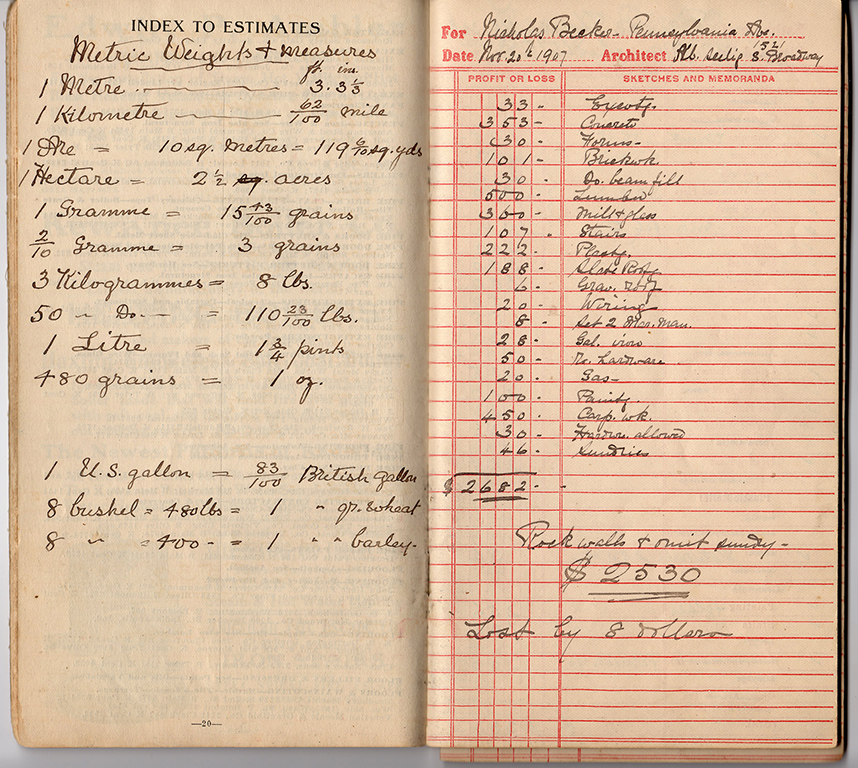 INDEX TO ESTIMATES
Metric Weights & measures
ft. ins.
1 Metre 3.3⅓
1 Kilometre 62/100 mile
1 Are = 10 sq. Metres = 119 6/10 sq. yds
1 Hectare = 2½ sq. acres
1 Gramme = 15 43/100 grains
2/10 Gramme = 3 grains
3 Kilogrammes = 8 lbs.
50 " Do. = 110 23/100 lbs.
1 Litre = 1¾ pints
480 grains = 1 oz.
1 U.S. gallon = 83/100 British gallon
8 bushel = 480 lbs = 1 " qr. wheat
8 " = 400 - = 1 " " barley-
—20—
For Nicholas Becker - Pennsylvania Ave.
Date Nov. 20th 1907 Architect Alb. 1521 S. Broadway
PROFIT OR LOSS SKETCHES AND MEMORANDA
33 "
353 - Concrete
30 - Forms -
101 - Brickwk
30 - Do. beam fill
500 - Lumber
350 - Mill & glass
107 " Stairs
222 - Plastg.
188 - Slate Roofg
6 - Grav. roof
20 - Wiring
8 - Set 2 man.
28 - Gal. iron
50 - hardware
20 - Gas -
100 - Paintg.
450 - Carp. wk.
30 - Hardw. allowed
46 - Sundries
$ 2682 - -
Rock walls & omit sundry -
$ 2530
Lost by 8 dollars